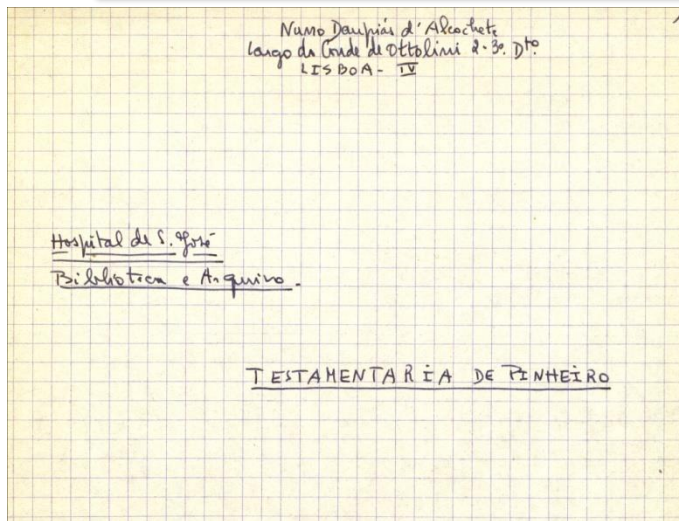 Nuno Daupiás d'Alcochete
Largo do Conde de Ottolini 2-3º. Dtº
LISBOA - IV
Hospital de S. José
Biblioteca e Arquivo.
TESTAMENTARIA DE PINHEIRO